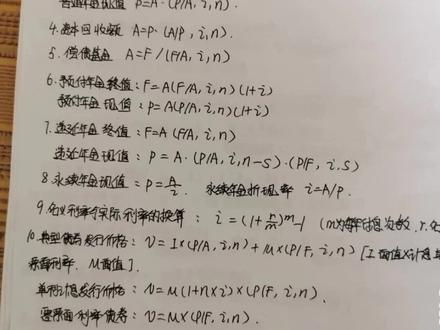 普通年金现值 P=A·(P/A, i, n).
4.资本回收额 A=P·(A/P, i, n).
5.偿债基金 A=F/(F/A, i, n)
6.预付年金终值：F=A(F/A, i, n)(1+i)
预付年金现值：P=A(P/A, i, n)(1+i)
7.递延年金终值：F=A(F/A, i, n)
递延年金现值：P=A·(P/A, i, n-s)·(P/F, i, s)
8.永续年金现值：P=A/i. 永续年金折现率 i=A/P.
9.名义利率与实际利率的换算：i=(1+r/m)^m-1 (m为年计息次数, r.名
10.典型债券发行价格：V=I×(P/A, i, n)+M×(P/F, i, n) [I面值×计息
票面利率. M面值].
单利计息发行价格：V=M(1+n×i)×(P/F, i, n).
票面利率债券：V=M×(P/F, i, n).